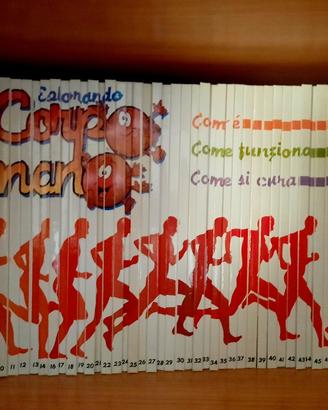 Eslorando
Corpo
mano
Com'è
Come funziona
Come si cura
11 12 13 14 16 17 18 19 20 21 22 23 24 25 26 27 28 29 30 31 32 33 34 35 36 37 38 39 40 41 42 43 44 45